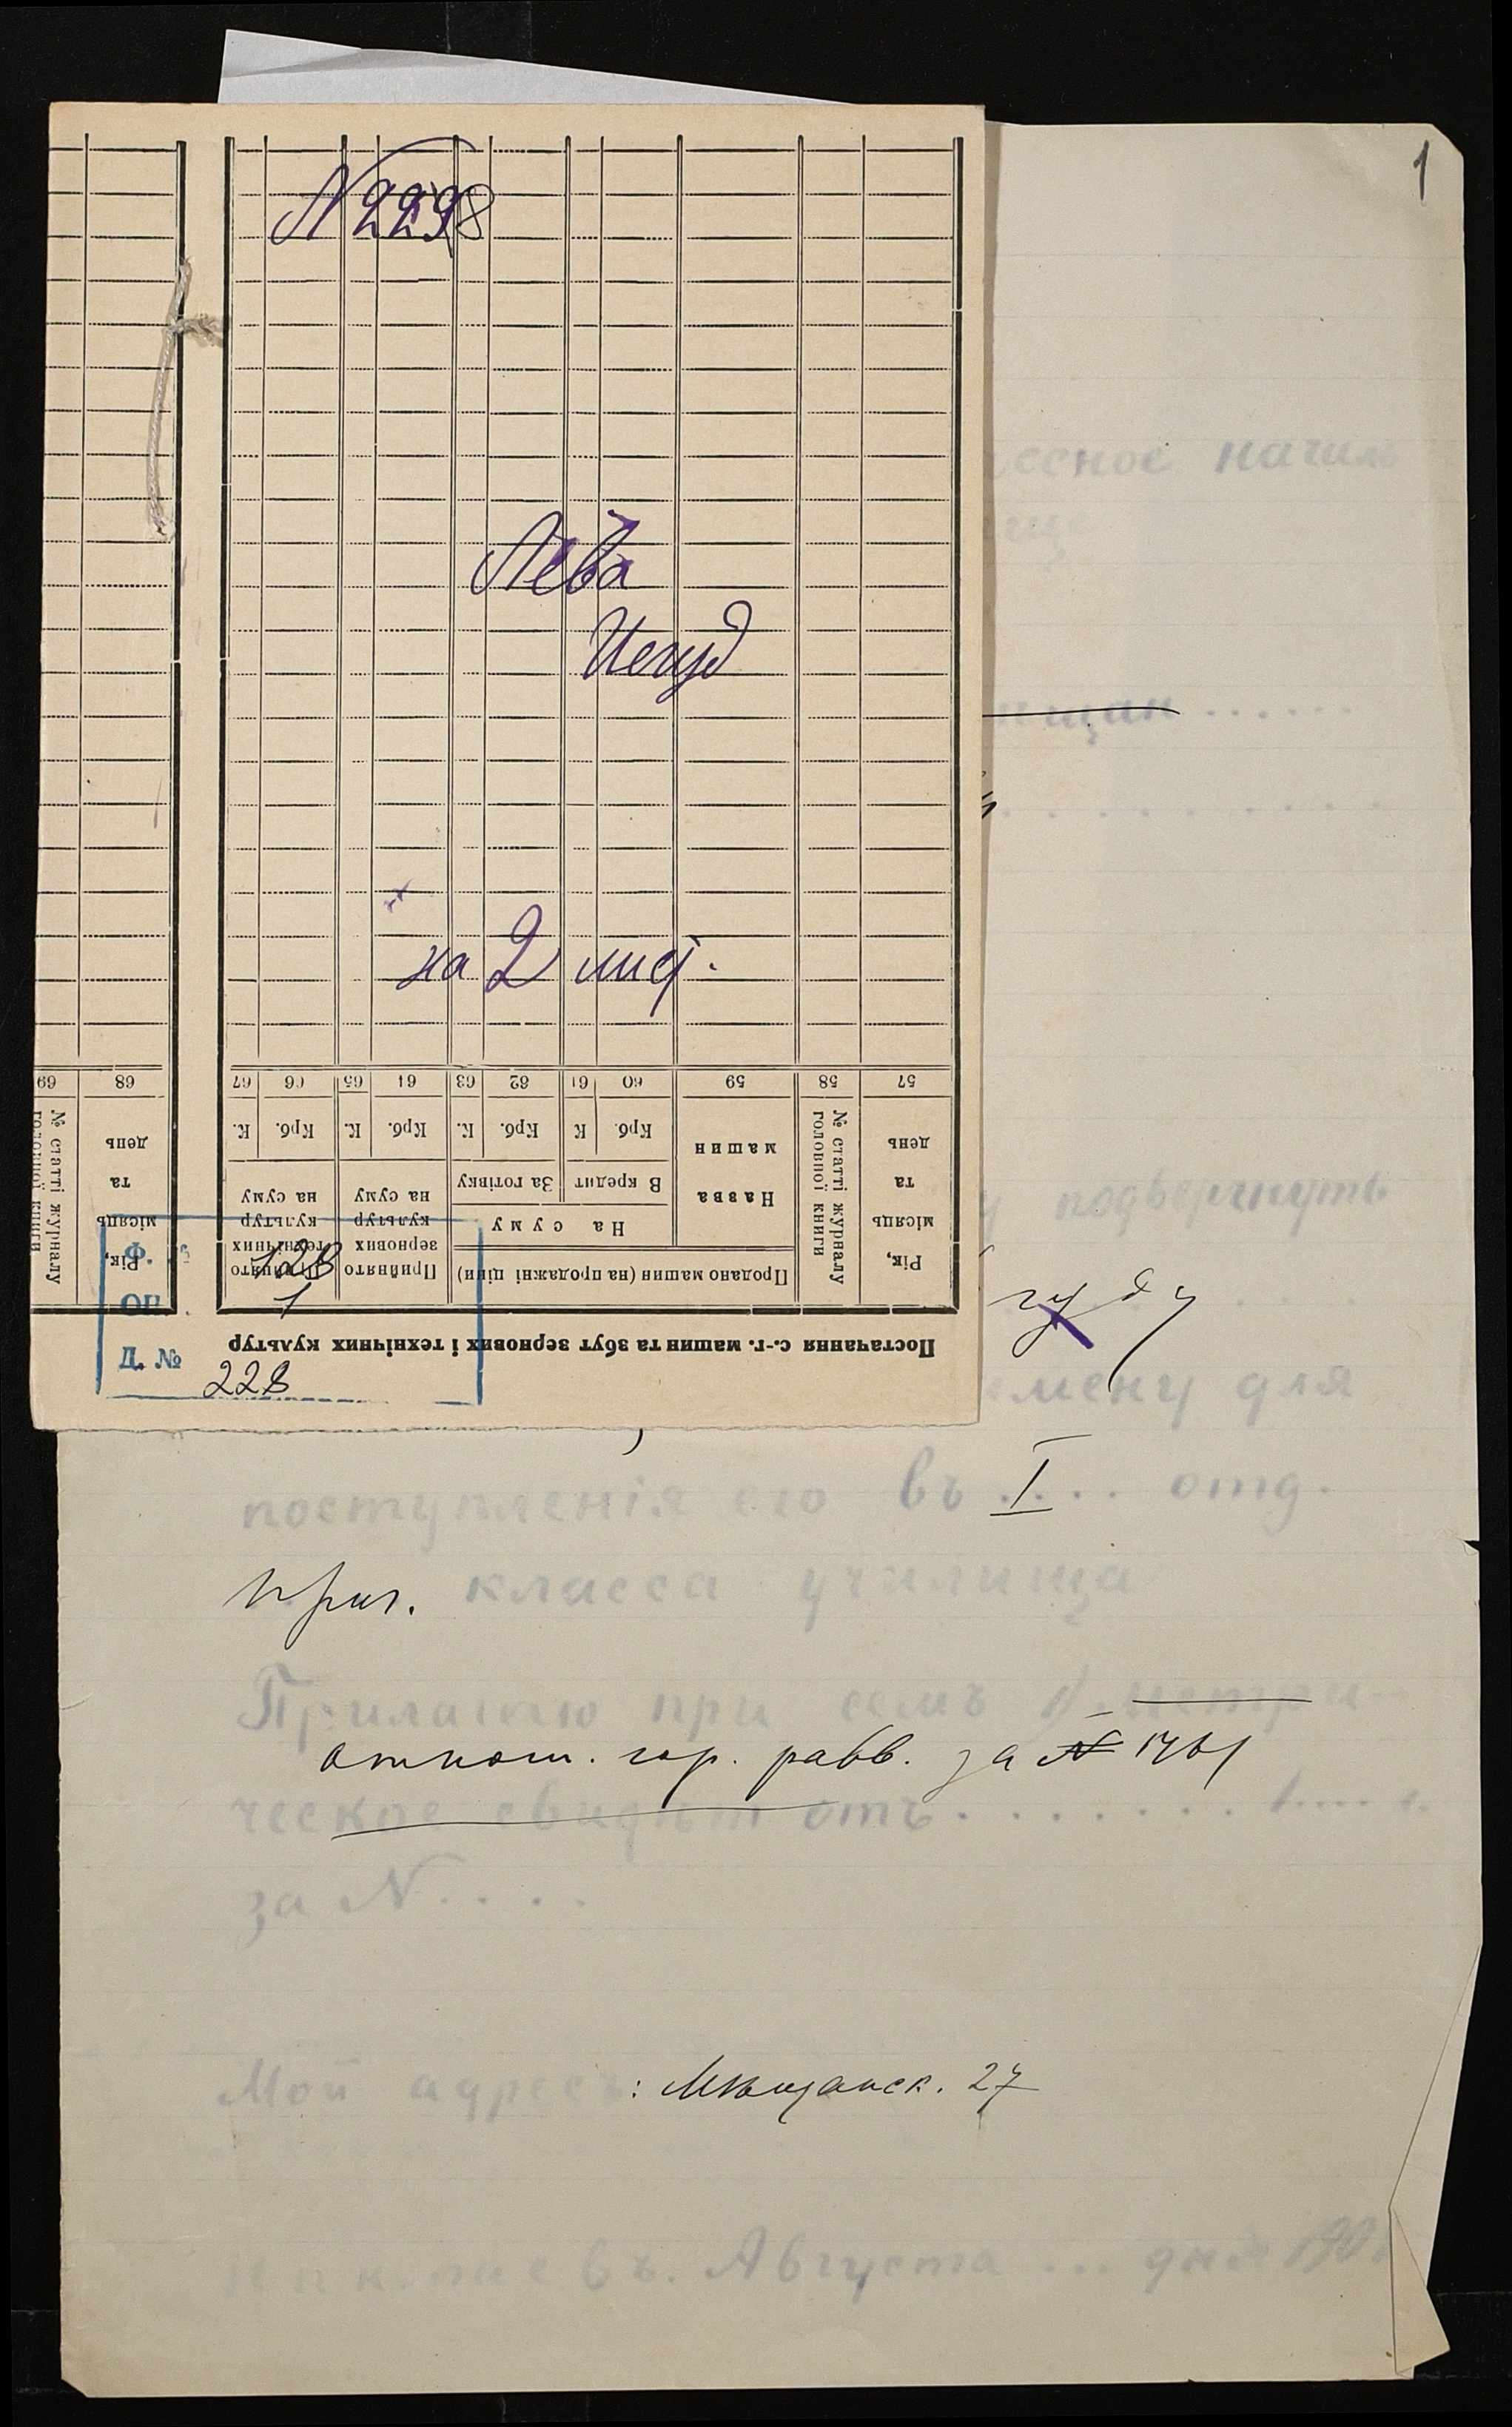 1
N 2298
Лева
Иегуд
на 2 лист.
57 58 59 60 61 62 63 64 65 66 67
68 69
Рік, місяць та день
№ статті журналу головної книги
Продано машин (на продажні ціни)
Назва машин
На суму
В кредит
За готівку
Крб. К.
Крб. К.
Прийнято зернових культур на суму
Крб. К.
Прийнято технічних культур на суму
Крб. К.
Рік, місяць та день
№ статті журналу головної книги
Постачання с.-г. машин та збут зернових і технічних культур
Ф. 128
оп. 1
Д. № 228
сное начиль
щан ......
подвергнуть
гуду
мену для
поступленія его въ I отд.
приг. класса училища
Прилагаю при семъ метри-
относ. гор. равв. за № 1761
ческое свидѣт отъ ........
за N ....
Мой адресъ: Мѣщанск. 27
Николаевъ. Августа ... дня 190